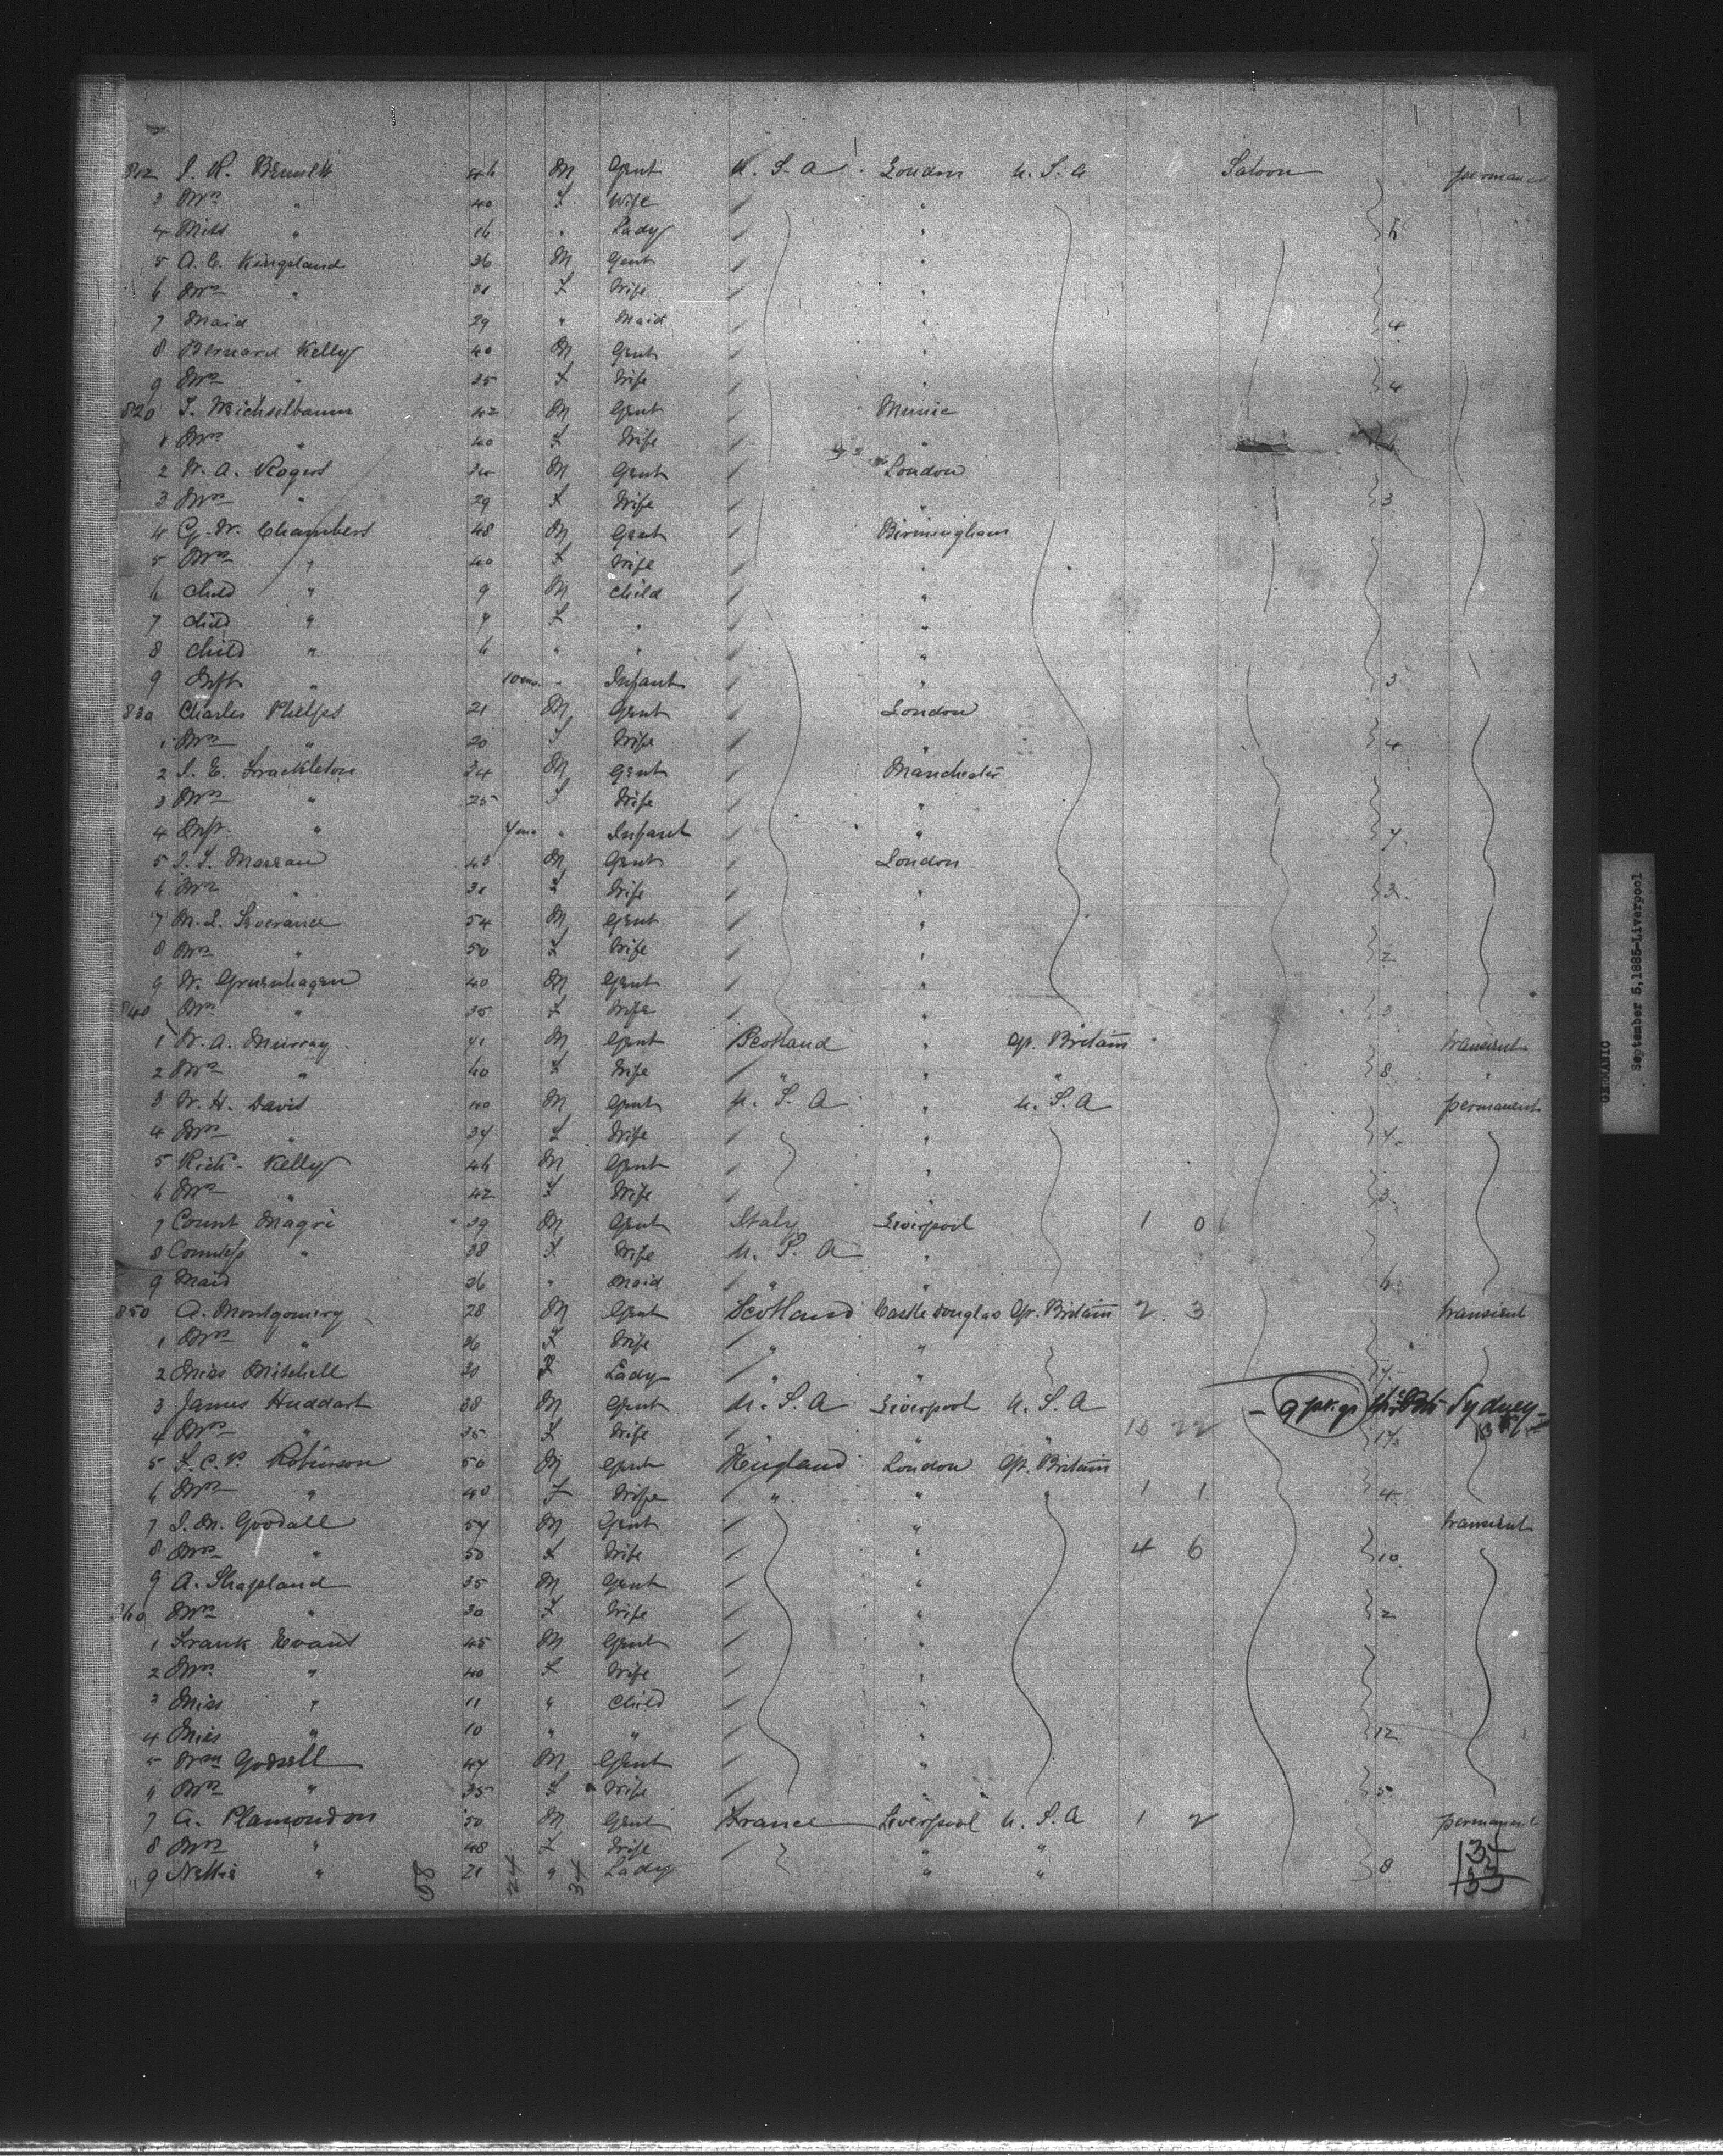 812 S. R. Bennett 46 M Gent U. S. A London U. S. A Saloon permanent
3 Mrs " 40 F Wife "
4 Miss " 16 " Lady " 6
5 A. C. Kingsland 36 M Gent "
6 Mrs " 31 F Wife "
7 Maid 29 " Maid " 4
8 Bernard Kelly 40 M Gent "
9 Mrs " 35 F Wife " 4
820 S. Weichselbaum 42 M Gent Munic
1 Mrs " 40 F Wife "
2 W. A. Rogers M Gent London
3 Mrs " 29 F Wife " 3
4 G. W. Chambers 48 M Gent Birmingham
5 Mrs " 40 F Wife "
6 Child " 9 M Child "
7 Child " 7 F " "
8 Child " 6 " " "
9 Inft " 10 mo. " Infant " 3
830 Charles Phelps 21 M Gent London
1 Mrs " 20 F Wife " 4
2 S. E. Frackleton 34 M Gent Manchester
3 Mrs " 25 F Wife "
4 Inft. " 7 mo " Infant " 7
5 M Gent London
6 Mrs " 31 F Wife " 3
7 M. L. Severance 54 M Gent "
8 Mrs " 50 F Wife " 2
9 W. Gruenhagen 40 M Gent "
840 Mrs " 35 F Wife " 3
1 W. A. Murray 41 M Gent Scotland " Gt. Britain transient
2 Mrs " 40 F Wife " " " 8 "
3 W. H. Davis 40 M Gent U. S. A " U. S. A permanent
4 Mrs " 37 F Wife " 7
5 Rich. Kelly 46 M Gent "
6 Mrs " 42 F Wife " 3
7 Count Magri 39 M Gent Italy Liverpool 1 0
8 Countess " 38 F Wife U. S. A "
9 Maid 26 " Maid " " 6
850 A. Montgomery 28 M Gent Scotland Castle Douglas Gt. Britain 2 3 transient
1 Mrs " 26 F Wife " "
2 Miss Mitchell 30 F Lady " "
3 James Huddart 38 M Gent U. S. A Liverpool U. S. A - 9 pkgs Sydney
4 Mrs " 35 F Wife " " 15 22
5 F. C. P. Robinson 50 M Gent England London Gt. Britain
6 Mrs " 40 F Wife " " " 1 1 4
7 S. M. Goodall 57 M Gent " transient
8 Mrs " 50 F Wife " 4 6 10
9 A. Shapland 35 M Gent "
860 Mrs " 30 F Wife " 2
1 Frank Evans 45 M Gent "
2 Mrs " 40 F Wife "
3 Miss " 11 " Child "
4 Miss " 10 " " " 12
5 Wm Godsell 47 M Gent "
6 Mrs " 35 F Wife 5
7 A. Plamondon 50 M Gent France Liverpool U. S. A 1 2 permanent
8 Mrs " 48 F Wife " "
9 Nettie " 21 " Lady " " 8
58 24 34
135
133
GERMANIC
September 5, 1885-Liverpool